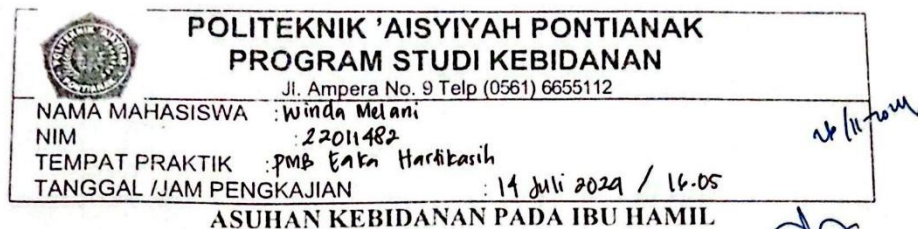 POLITEKNIK 'AISYIYAH PONTIANAK
PROGRAM STUDI KEBIDANAN
Jl. Ampera No. 9 Telp (0561) 6655112
NAMA MAHASISWA : Winda Melani
NIM : 22011482
TEMPAT PRAKTIK : PMB Hartikasih
TANGGAL /JAM PENGKAJIAN : 14 Juli 2024 / 16.05
ASUHAN KEBIDANAN PADA IBU HAMIL